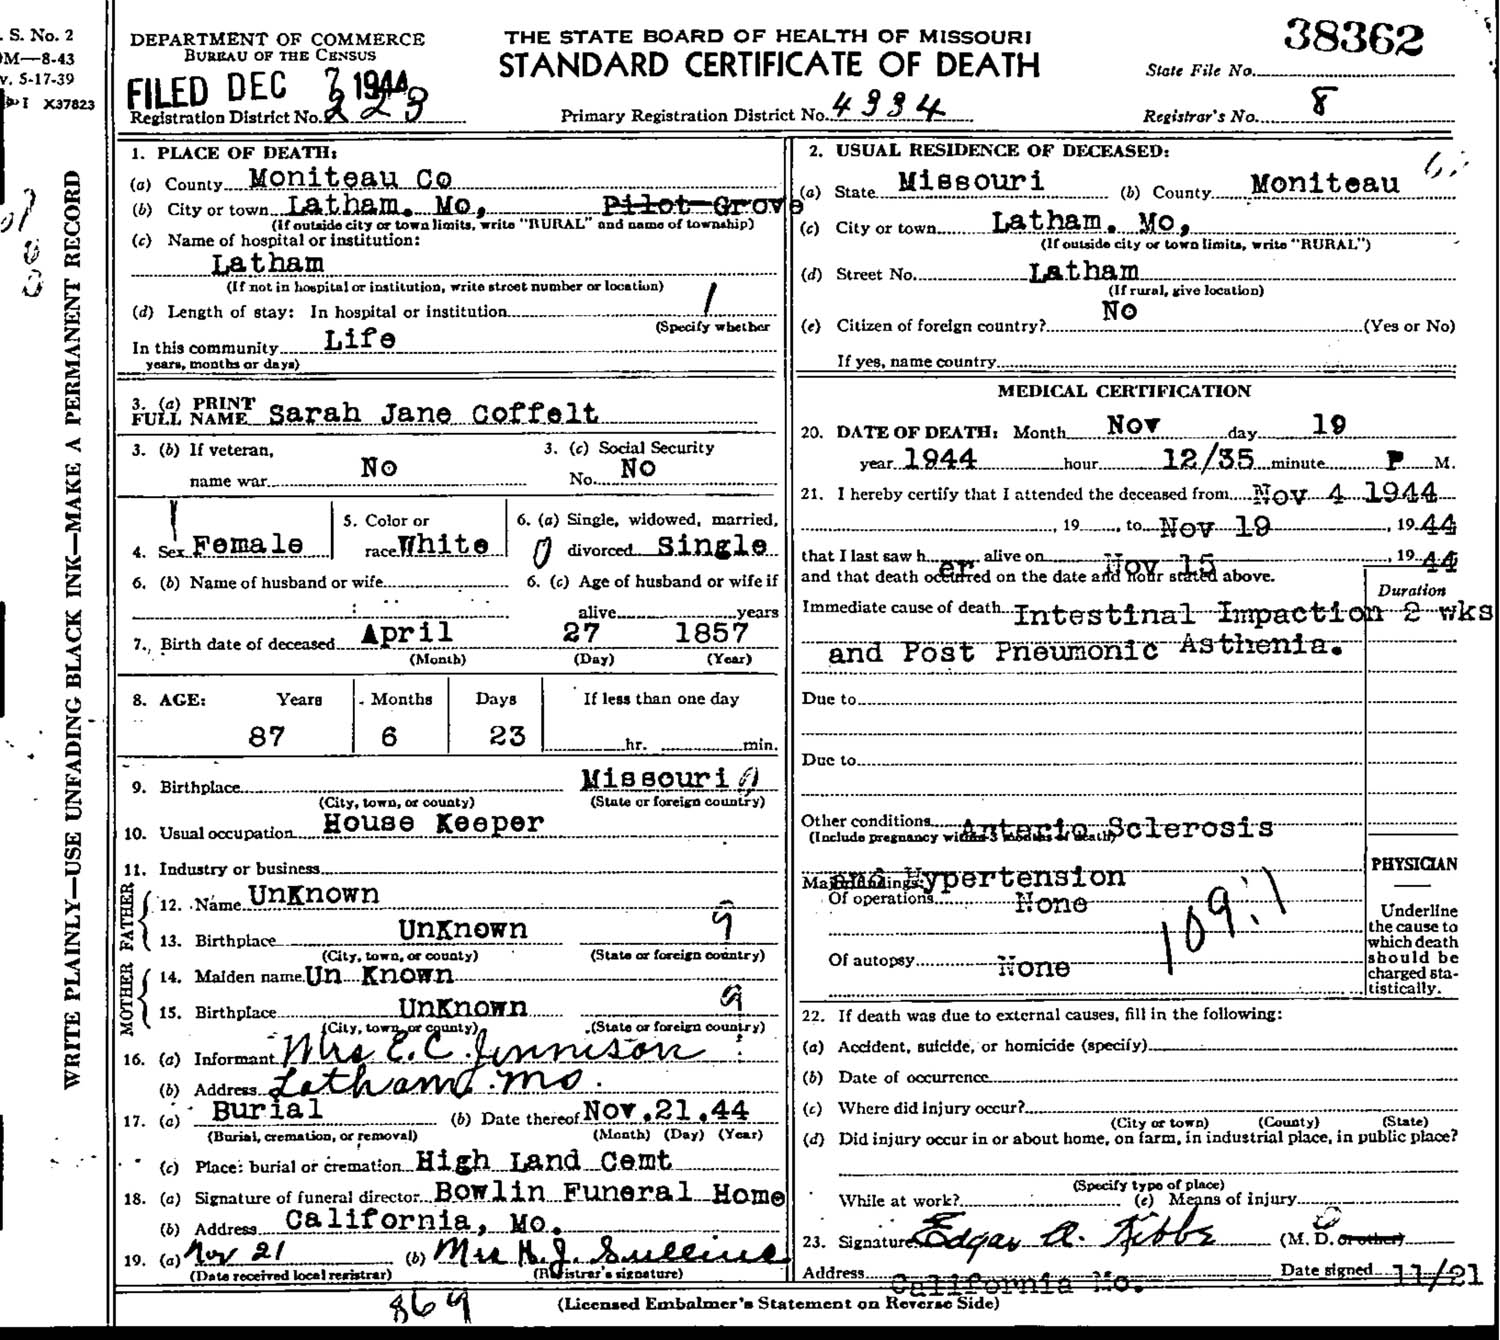 . S. No. 2
M—8-43
v. 5-17-39
I X37823
WRITE PLAINLY—USE UNFADING BLACK INK—MAKE A PERMANENT RECORD
DEPARTMENT OF COMMERCE
BUREAU OF THE CENSUS
FILED DEC 7 1944
Registration District No. 223
THE STATE BOARD OF HEALTH OF MISSOURI
STANDARD CERTIFICATE OF DEATH
Primary Registration District No. 4334
38362
State File No.
Registrar's No. 8
1. PLACE OF DEATH:
(a) County Moniteau Co
(b) City or town Latham. Mo, Pilot Grove
(If outside city or town limits, write "RURAL" and name of township)
(c) Name of hospital or institution:
Latham
(If not in hospital or institution, write street number or location)
(d) Length of stay: In hospital or institution /
(Specify whether
In this community Life
years, months or days)
2. USUAL RESIDENCE OF DECEASED:
(a) State Missouri (b) County Moniteau
(c) City or town Latham. Mo,
(If outside city or town limits, write "RURAL")
(d) Street No. Latham
(If rural, give location)
(e) Citizen of foreign country? No (Yes or No)
If yes, name country
3. (a) PRINT FULL NAME Sarah Jane Coffelt
3. (b) If veteran, name war No
3. (c) Social Security No. No
4. Sex Female
5. Color or race White
6. (a) Single, widowed, married, divorced Single
6. (b) Name of husband or wife
6. (c) Age of husband or wife if alive years
7. Birth date of deceased April 27 1857
(Month) (Day) (Year)
8. AGE: Years Months Days If less than one day
87 6 23 hr. min.
9. Birthplace Missouri
(City, town, or county) (State or foreign country)
10. Usual occupation House Keeper
11. Industry or business
FATHER
12. Name UnKnown
13. Birthplace UnKnown 9
(City, town, or county) (State or foreign country)
MOTHER
14. Maiden name Un Known
15. Birthplace UnKnown 9
(City, town, or county) (State or foreign country)
16. (a) Informant Mrs E. C. Jennison
(b) Address Latham, Mo.
17. (a) Burial (b) Date thereof Nov.21.44
(Burial, cremation, or removal) (Month) (Day) (Year)
(c) Place: burial or cremation High Land Cemt
18. (a) Signature of funeral director Bowlin Funeral Home
(b) Address California, Mo.
19. (a) Nov 21 (b) Mrs H. J.
(Date received local registrar) (Registrar's signature)
MEDICAL CERTIFICATION
20. DATE OF DEATH: Month Nov day 19
year 1944 hour 12/35 minute P M.
21. I hereby certify that I attended the deceased from Nov 4 1944
, 19 , to Nov 19 , 19 44
that I last saw h er alive on Nov 15 , 19 44
and that death occurred on the date and hour stated above.
Duration
Immediate cause of death Intestinal Impaction 2 wks
and Post Pneumonic Asthenia.
Due to
Due to
Other conditions Anterio Sclerosis
(Include pregnancy within 3 months of death)
and Hypertension
Major findings:
Of operations None
109.1
Of autopsy None
PHYSICIAN
Underline
the cause to
which death
should be
charged sta-
tistically.
22. If death was due to external causes, fill in the following:
(a) Accident, suicide, or homicide (specify)
(b) Date of occurrence
(c) Where did injury occur?
(City or town) (County) (State)
(d) Did injury occur in or about home, on farm, in industrial place, in public place?
(Specify type of place)
While at work? (e) Means of injury
23. Signature Edgar A. Kibbe (M. D. or other)
Address California Mo. Date signed 11/21
869
(Licensed Embalmer's Statement on Reverse Side)